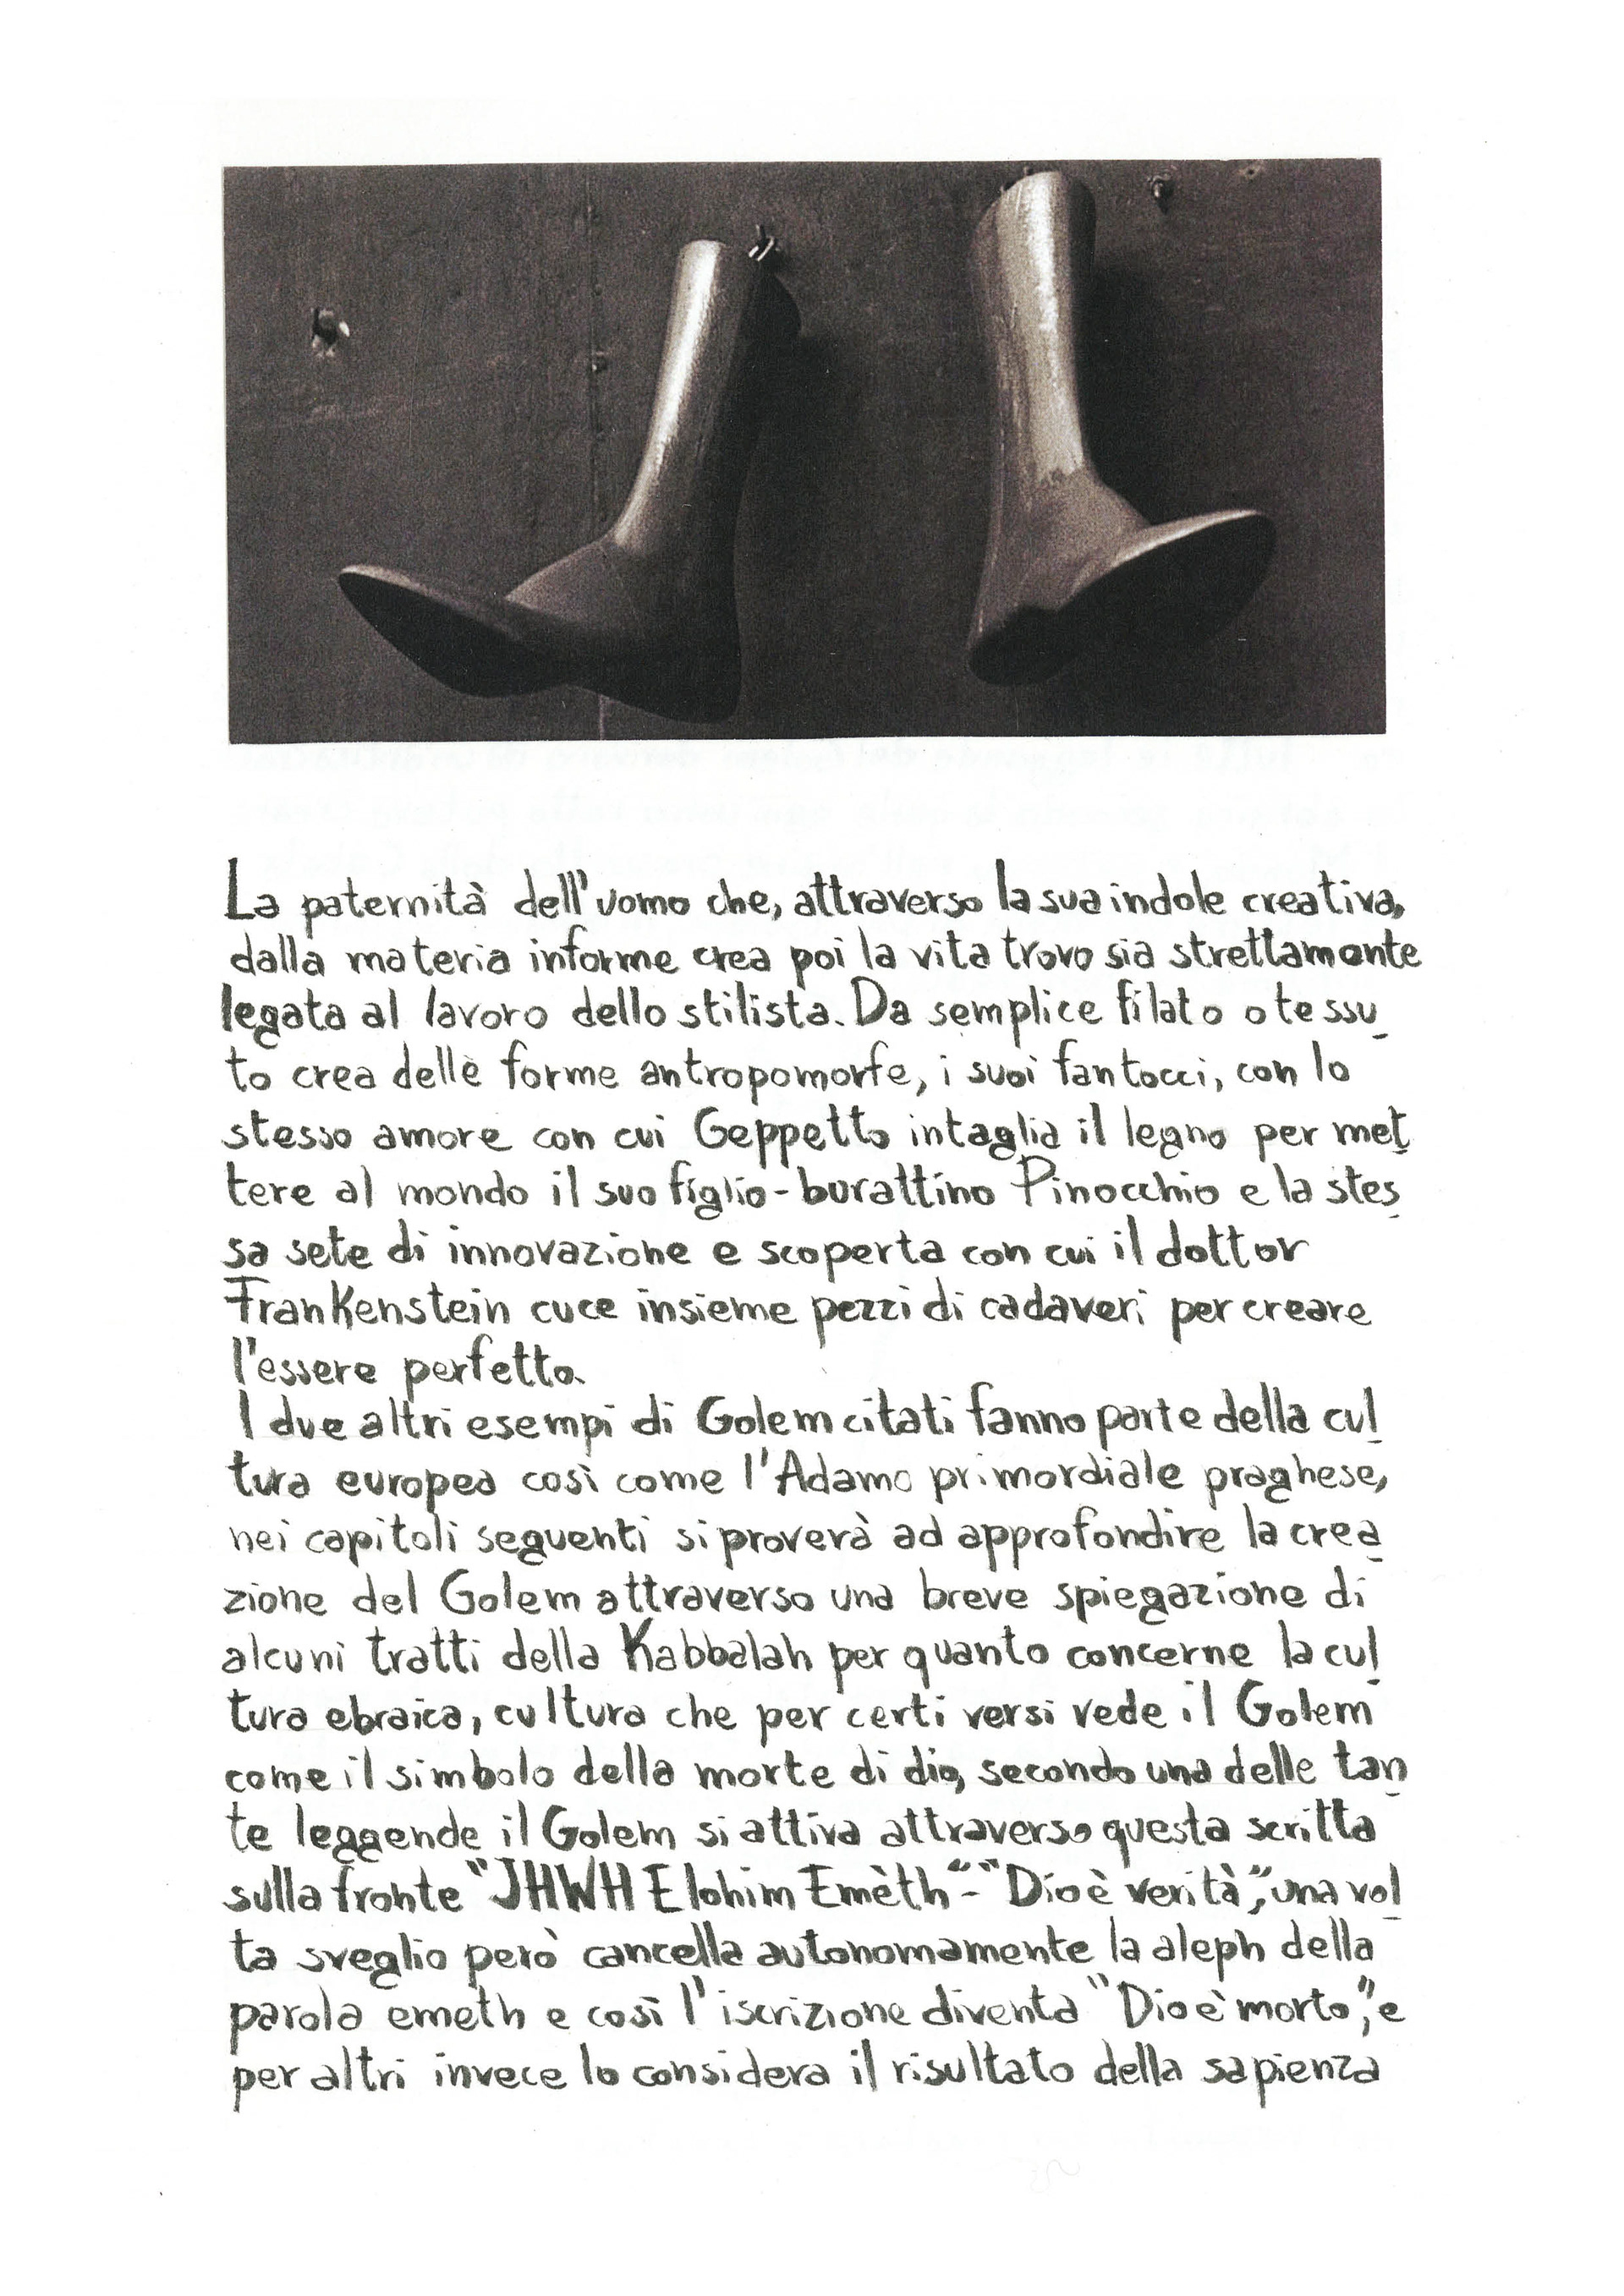 La paternità dell'uomo che, attraverso la sua indole creativa,
dalla materia informe crea poi la vita trovo sia strettamente
legata al lavoro dello stilista. Da semplice filato o tessu_
to crea delle forme antropomorfe, i suoi fantocci, con lo
stesso amore con cui Geppetto intaglia il legno per met_
tere al mondo il suo figlio-burattino Pinocchio e la stes_
sa sete di innovazione e scoperta con cui il dottor
Frankenstein cuce insieme pezzi di cadaveri per creare
l'essere perfetto.
I due altri esempi di Golem citati fanno parte della cul_
tura europea così come l'Adamo primordiale praghese,
nei capitoli seguenti si proverà ad approfondire la crea_
zione del Golem attraverso una breve spiegazione di
alcuni tratti della Kabbalah per quanto concerne la cul_
tura ebraica, cultura che per certi versi vede il Golem
come il simbolo della morte di dio, secondo una delle tan_
te leggende il Golem si attiva attraverso questa scritta
sulla fronte "JHWH Elohim Emèth"-"Dio è verità", una vol_
ta sveglio però cancella autonomamente la aleph della
parola emeth e così l'iscrizione diventa "Dio è morto", e
per altri invece lo considera il risultato della sapienza